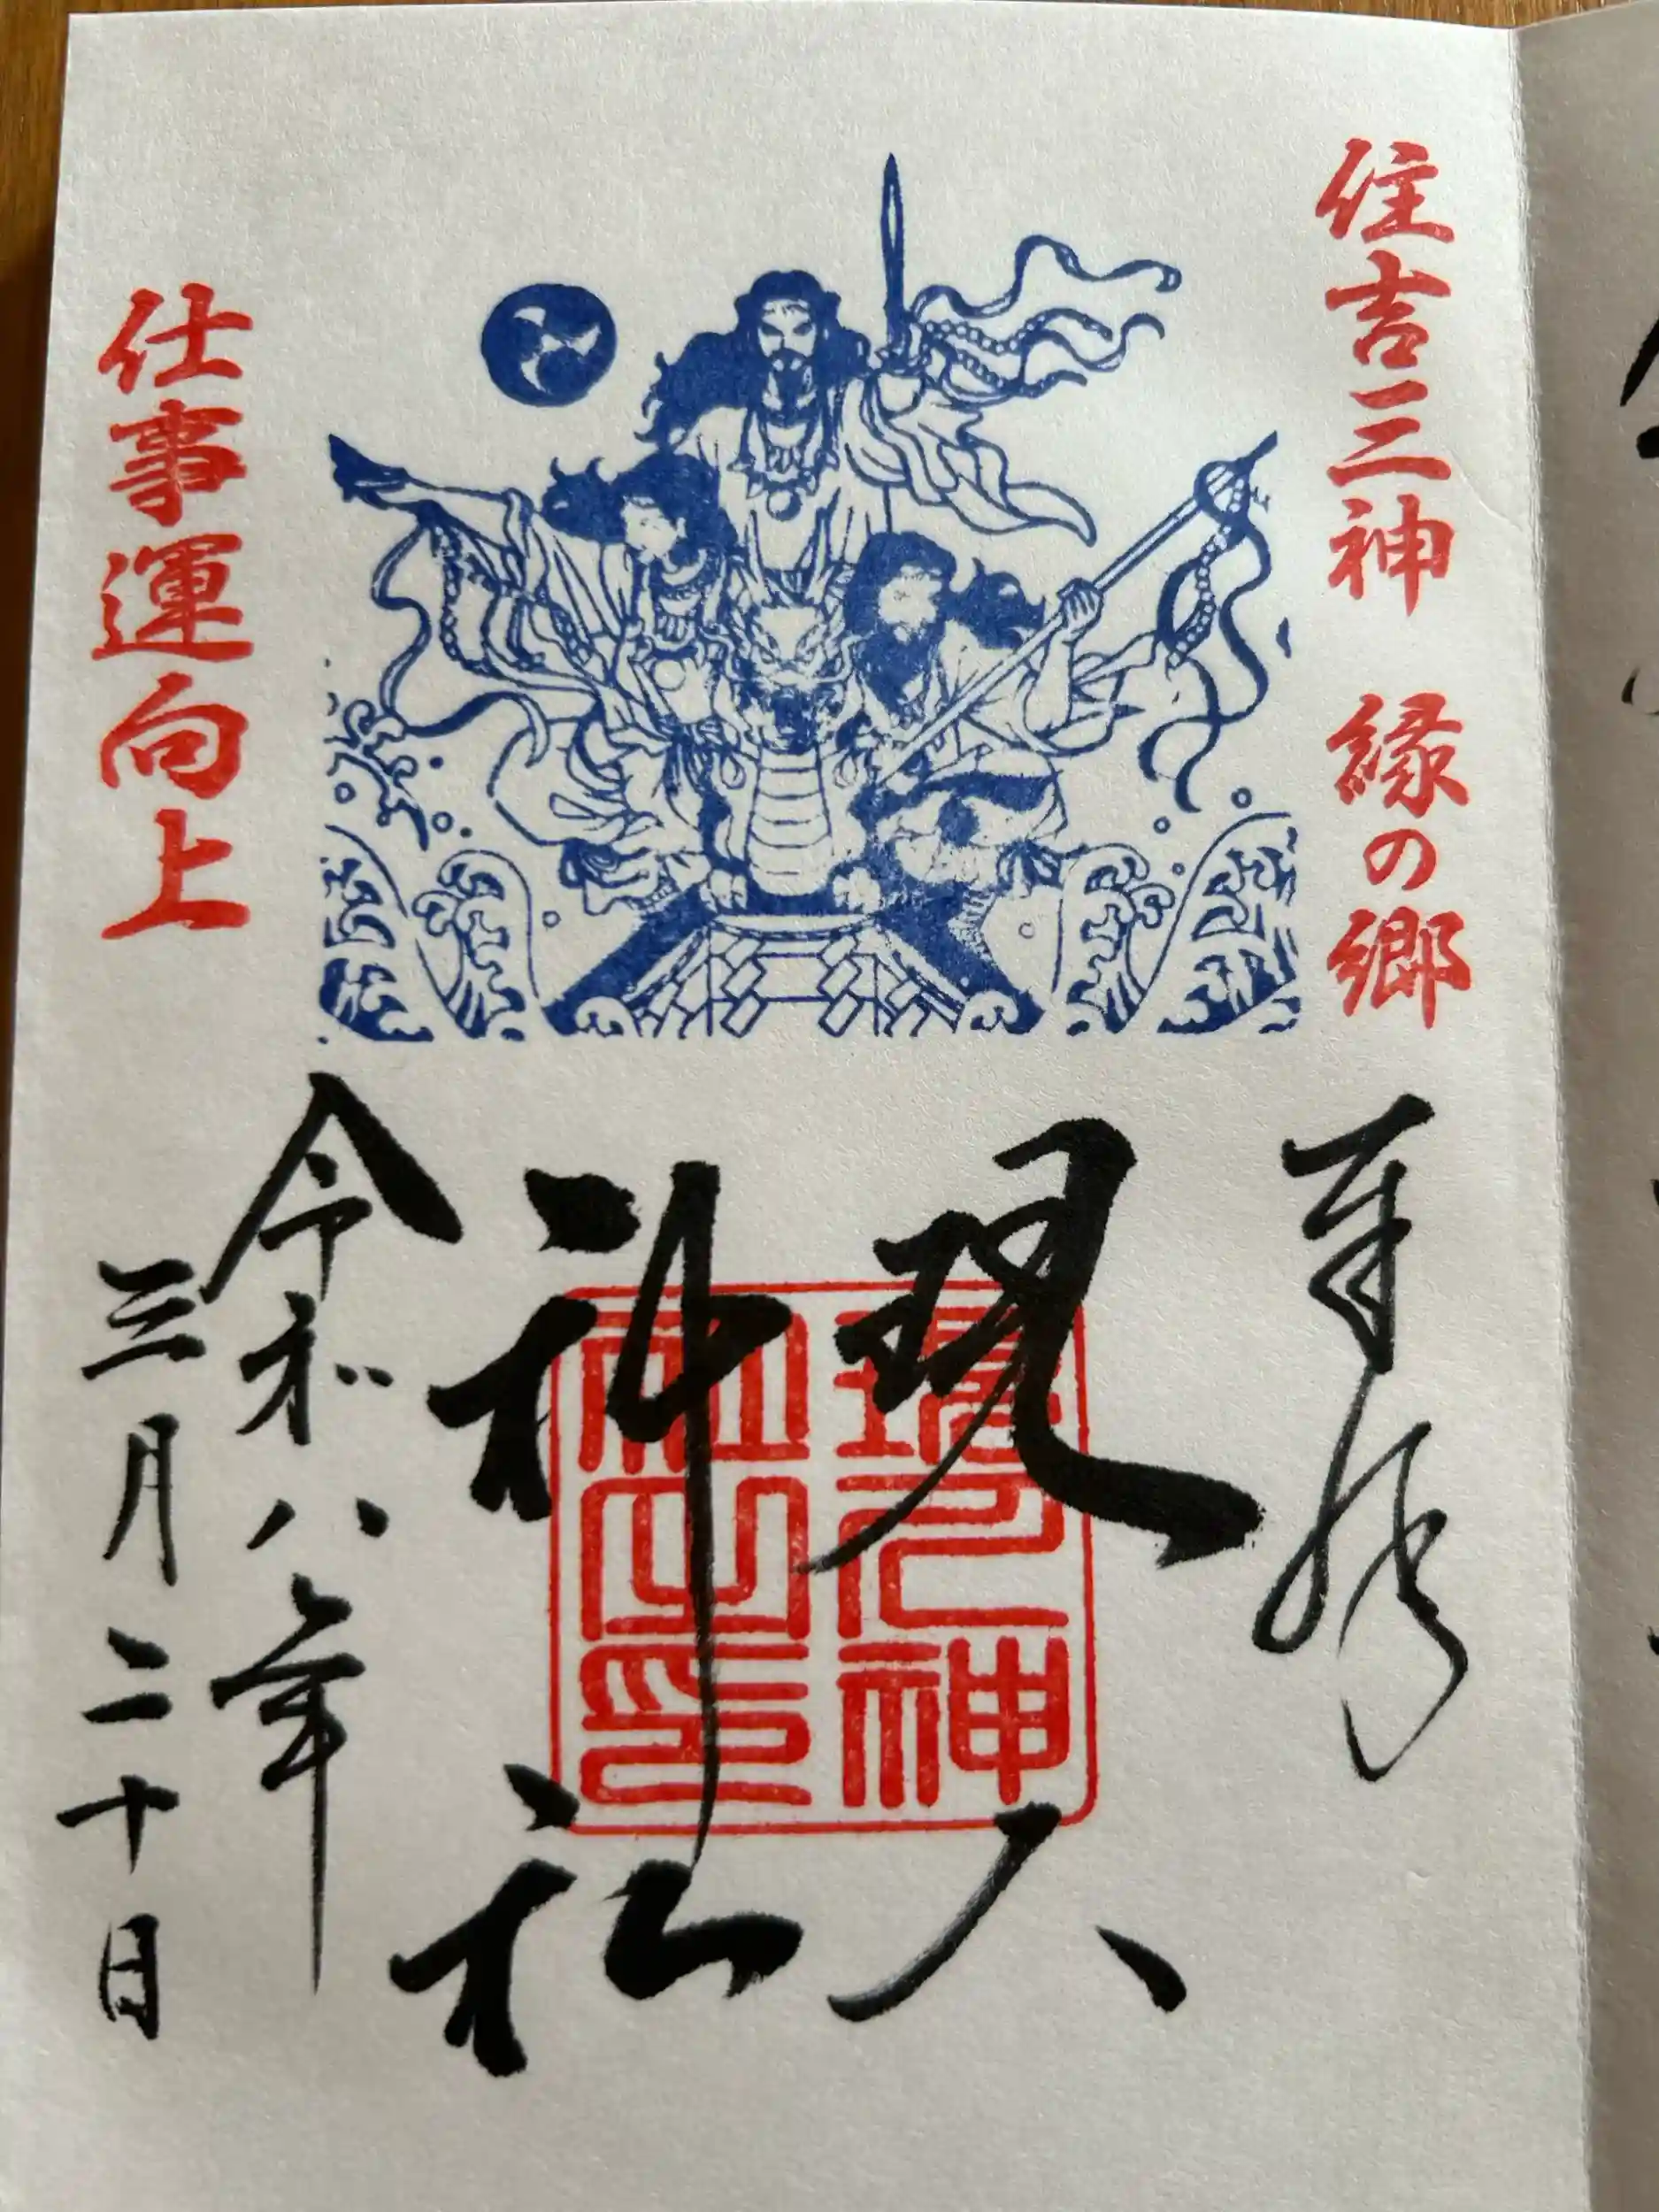 住吉三神 縁の郷
奉拝
現人
神社
現人神
社之印
仕事運向上
令和八年
三月二十日